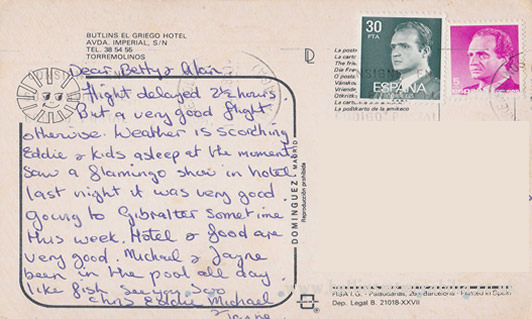 BUTLINS EL GRIEGO HOTEL
AVDA. IMPERIAL, S/N
TEL. 38 54 55
TORREMOLINOS
Dear Betty & Alan,
flight delayed 2½ hours.
But a very good flight
otherwise. Weather is scorching
Eddie & kids asleep at the moment
Saw a flamingo show in hotel
last night it was very good.
Going to Gibralter sometime
this week. Hotel & food are
very good. Michael & Jayne
been in the pool all day
like fish see you soo
Chris Eddie Michael
& Jayne
30
PTA
ESPAÑA
5
ESPAÑA
La poste
La cart
The frie
Dia Fre
O posts
Vánoku
Vriende
Otkritk
La carto
La poŝtkarto de la amikeco
DOMINGUEZ. MADRID
Reproducción prohibida
FISA I.G. - Palaudarias, 26 - Barcelona - Printed in Spain
Dep. Legal B. 21018-XXVII